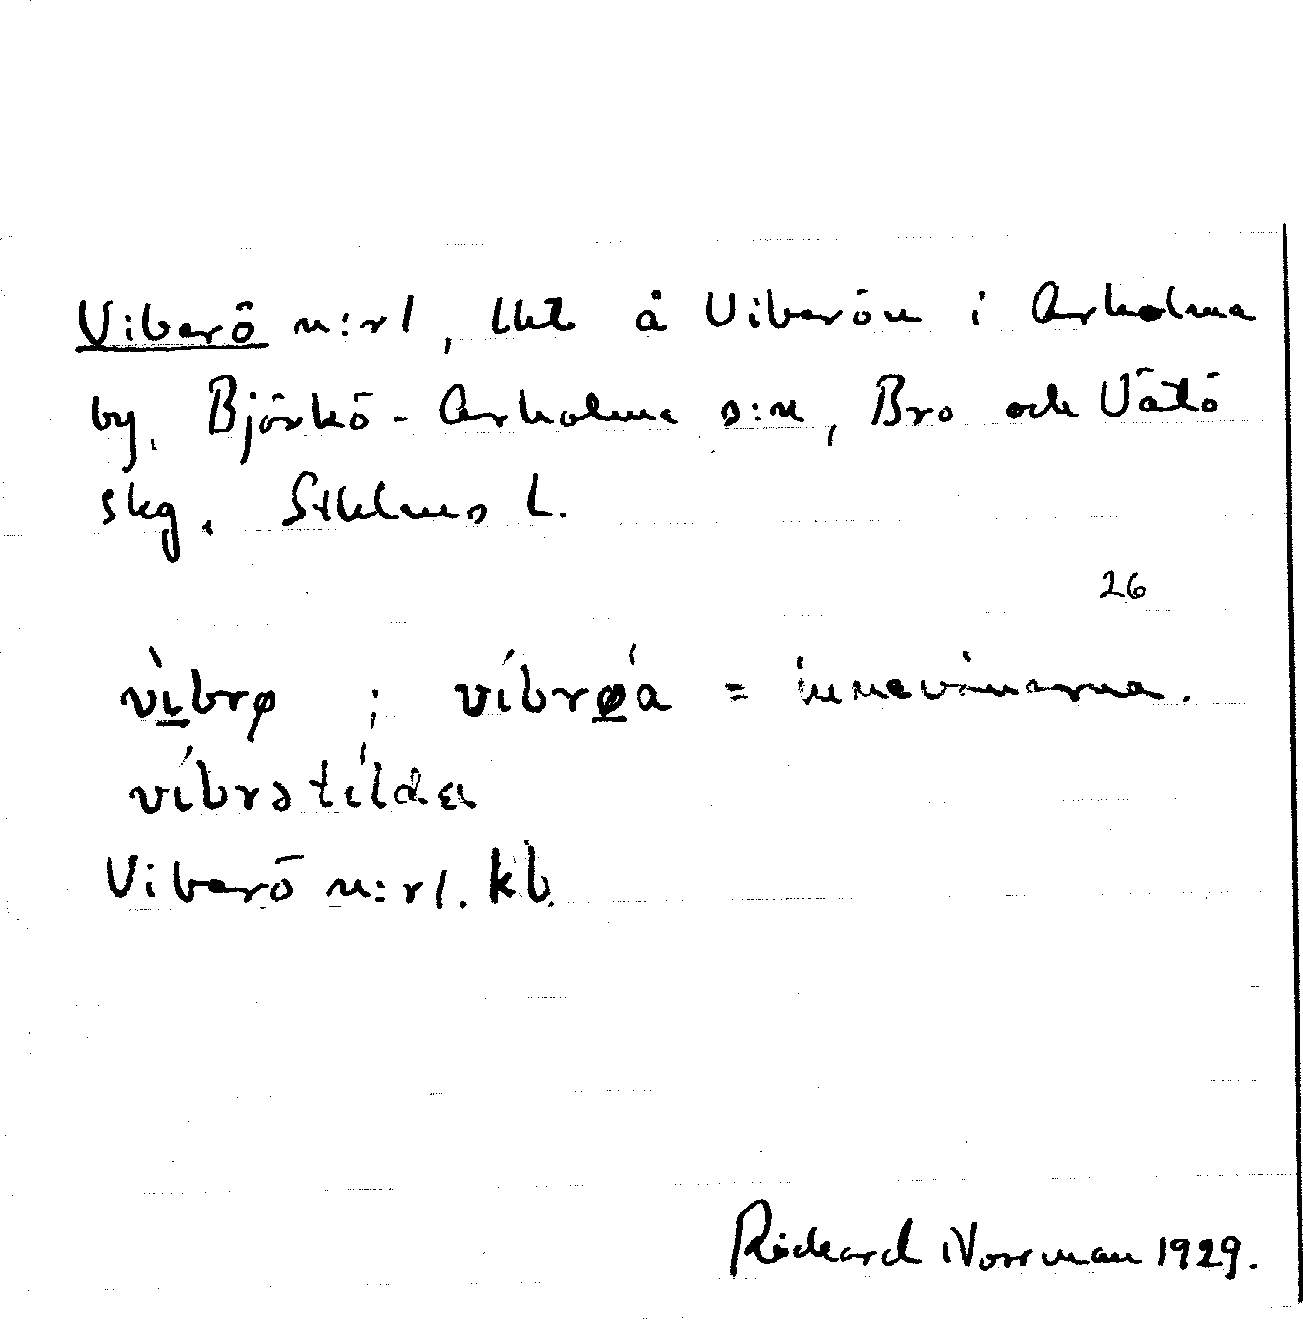 Viberö n:r 1, lht å Viberön i Arholma
by, Björkö-Arholma s:n, Bro och Vätö
skg. Sthlms L.
26
vìbrø ; víbrøá = innevånarna.
víbrətílda
Viberö n:r 1. kb.
Rickard Norrman 1929.